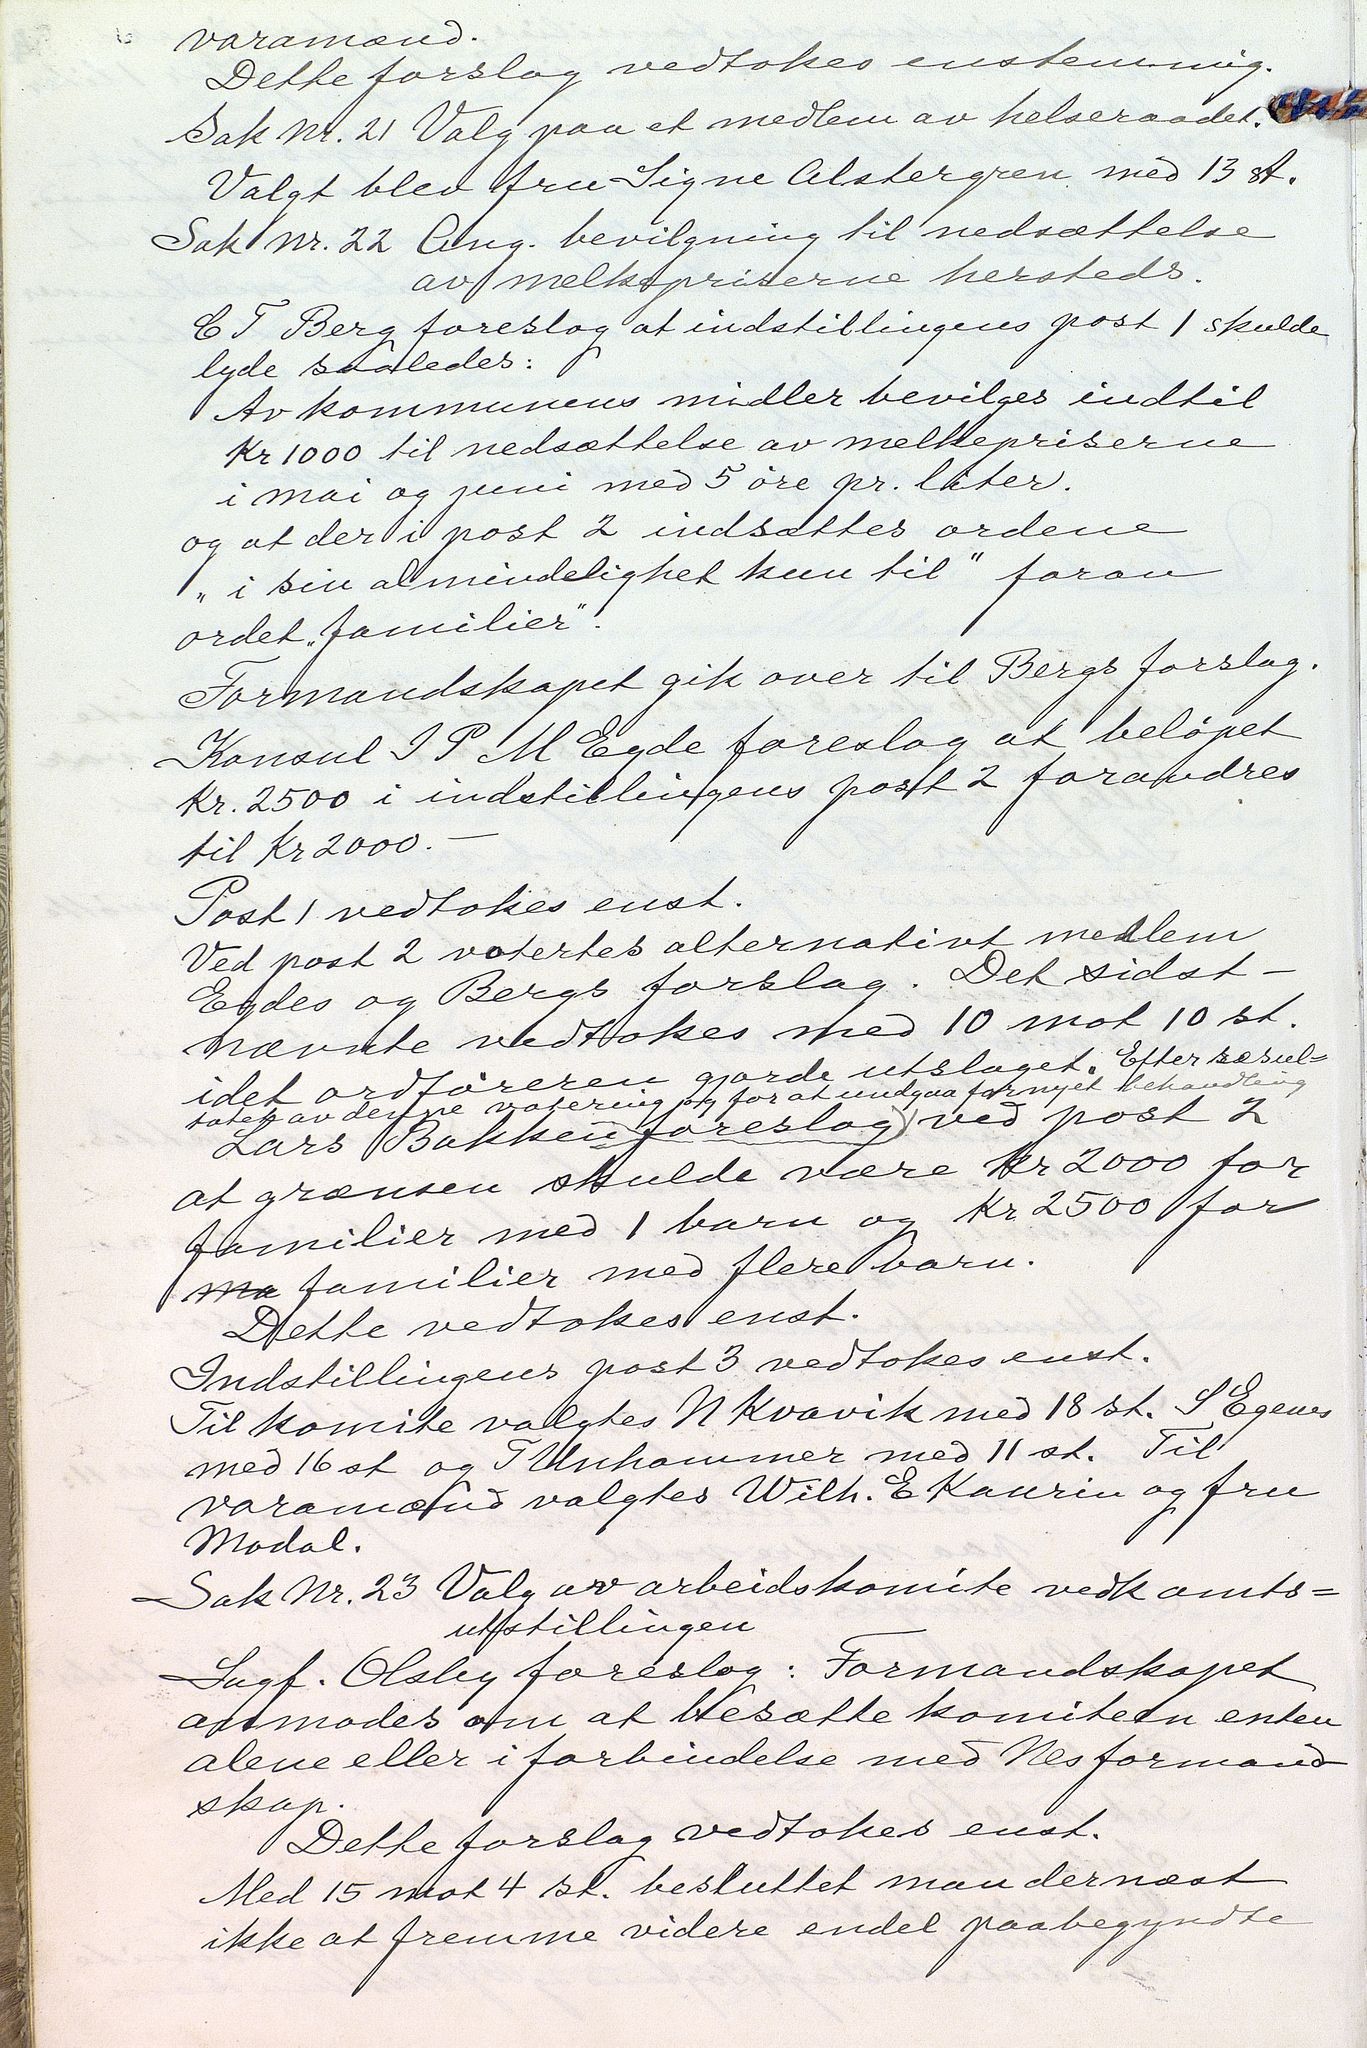 varamænd.
Dette forslag vedtokes enstemmig.
Sak Nr. 21 Valg paa et medlem av helseraadet.
Valgt blev fru Signe Alstergren med 13 st.
Sak Nr. 22 Ang. bevilgning til nedsættelse
av melkepriserne hersteds.
C T Berg foreslog at indstillingens post 1 skulde
lyde saaledes:
Av kommunens midler bevilges indtil
Kr 1000 til nedsættelse av melkepriserne
i mai og juni med 5 øre pr. liter.
og at der i post 2 indsættes ordene
„i sin almindelighet kun til" foran
ordet „familier".
Formandskapet gik over til Bergs forslag.
Konsul I P M Egde foreslog at beløpet
Kr. 2500 i indstillingens post 2 forandres
til Kr 2000.—
Post 1 vedtokes enst.
Ved post 2 votertes alternativt mellem
Egdes og Bergs forslag. Det sidst-
nævnte vedtokes med 10 mot 10 st.
idet ordføreren gjorde utslaget. Efter resul=
tatet av denne votering og for at undgaa fornyet behandling
Lars Bakken foreslog ved post 2
at grænsen skulde være Kr 2000 for
familier med 1 barn og Kr 2500 for
ma familier med flere barn.
Dette vedtokes enst.
Indstillingens post 3 vedtokes enst.
Til komite valgtes N Kvavik med 18 st. S Egenes
med 16 st og T Unhammer med 11 st. Til
varamænd valgtes Wilh. E Kaurin og fru
Modal.
Sak Nr. 23 Valg av arbeidskomite vedk amts=
utstillingen
Sagf. Olsby foreslog: Formandskapet
anmodes om at besætte komiteen enten
alene eller i forbindelse med Nes formand
skap.
Dette forslag vedtokes enst.
Med 15 mot 4 st. besluttet man dernæst
ikke at fremme videre endel paabegyndte